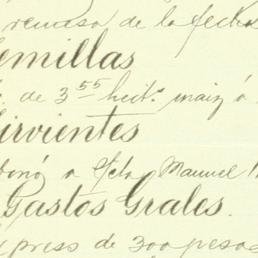 remesa de la fecha
Semillas
de 3 55 hect.s maiz á
Sirvientes
abonó a Fcto Manuel
Gastos Grales.
Express de 300 pesos